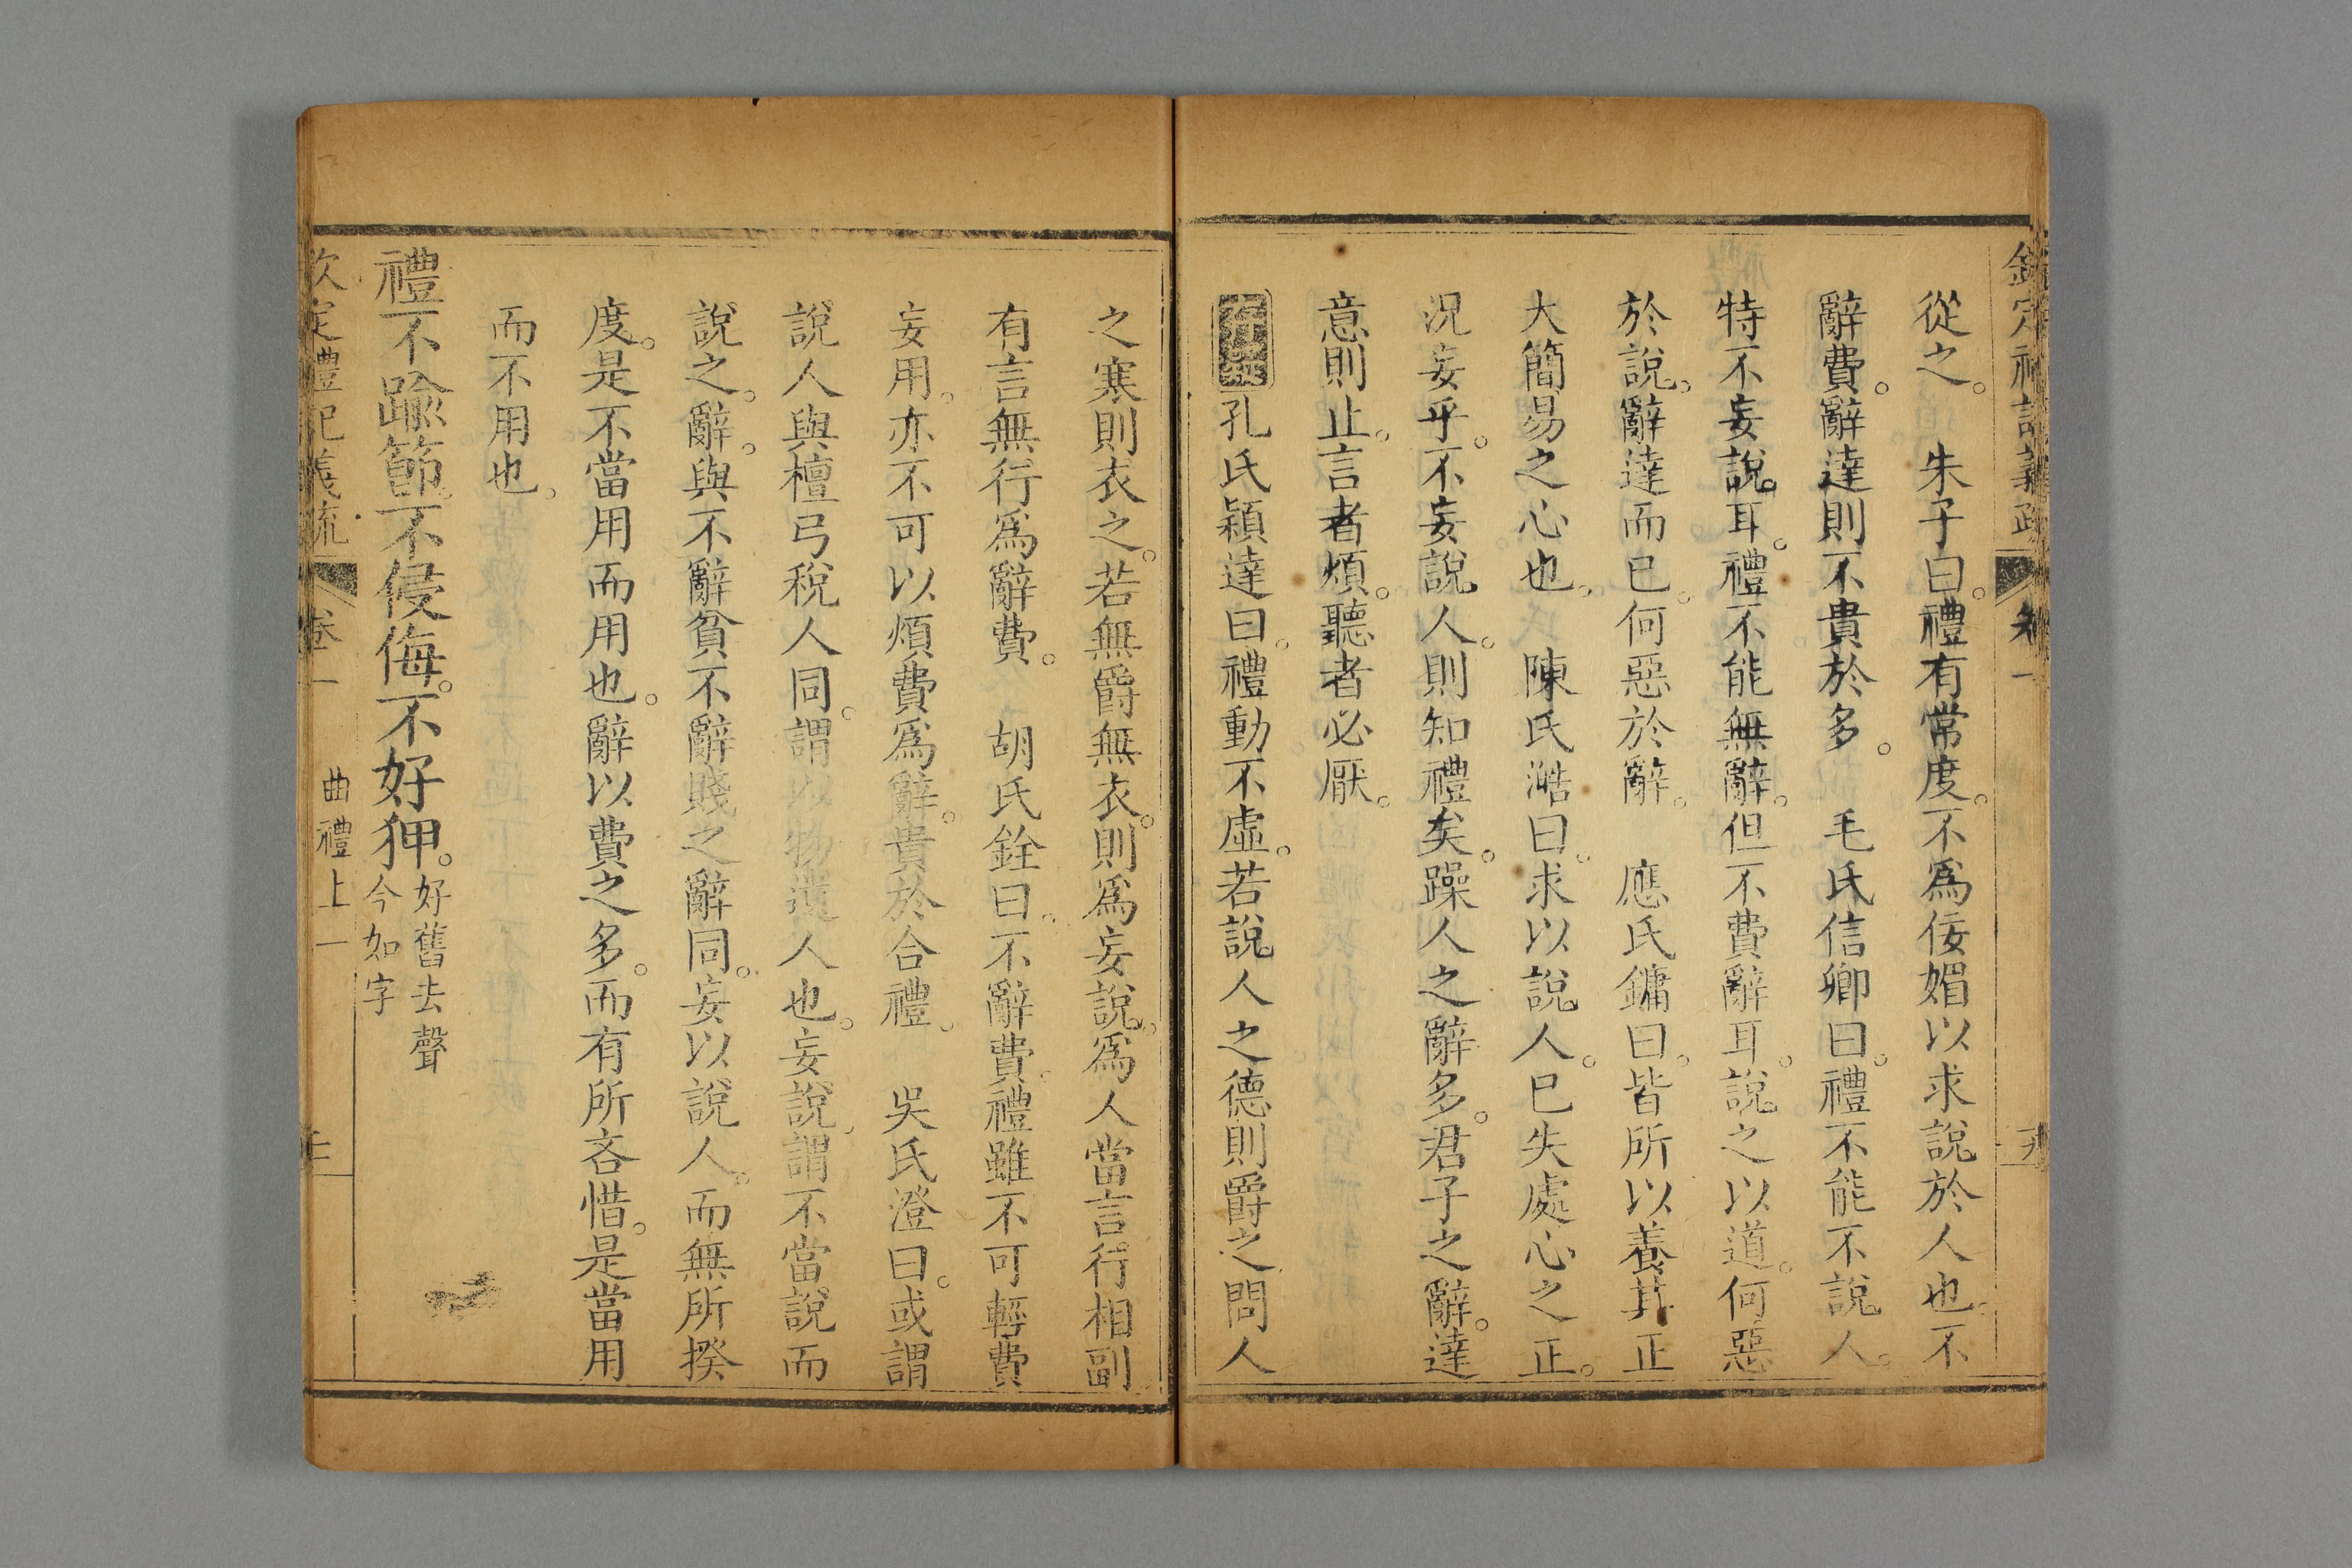 欽定禮記義疏 卷一
從之。　朱子曰。禮有常度。不爲佞媚以求說於人也。不
辭費。辭達則不貴於多。　毛氏信卿曰。禮不能不說人。
特不妄說耳。禮不能無辭。但不費辭耳。說之以道。何惡
於說。辭達而已。何惡於辭。　應氏鏞曰。皆所以養其正
大簡易之心也。　陳氏澔曰。求以說人。已失處心之正。
況妄乎。不妄說人。則知禮矣。躁人之辭多。君子之辭。達
意則止。言者煩。聽者必厭。
孔氏穎達曰。禮動不虛。若說人之德則爵之問人
之寒則衣之。若無爵無衣。則爲妄說。爲人當言行相副
有言無行爲辭費。　胡氏銓曰。不辭費。禮雖不可輕費
妄用。亦不可以煩費爲辭。貴於合禮。　吳氏澄曰。或謂
說人與檀弓稅人同。謂以物遺人也。妄說謂不當說而
說之。辭。與不辭貧不辭賤之辭同。妄以說人。而無所揆
度。是不當用而用也。辭以費之多。而有所吝惜。是當用
而不用也。
禮不踰節。不侵侮。不好狎。好舊去聲
今如字
欽定禮記義疏 卷一 曲禮上一